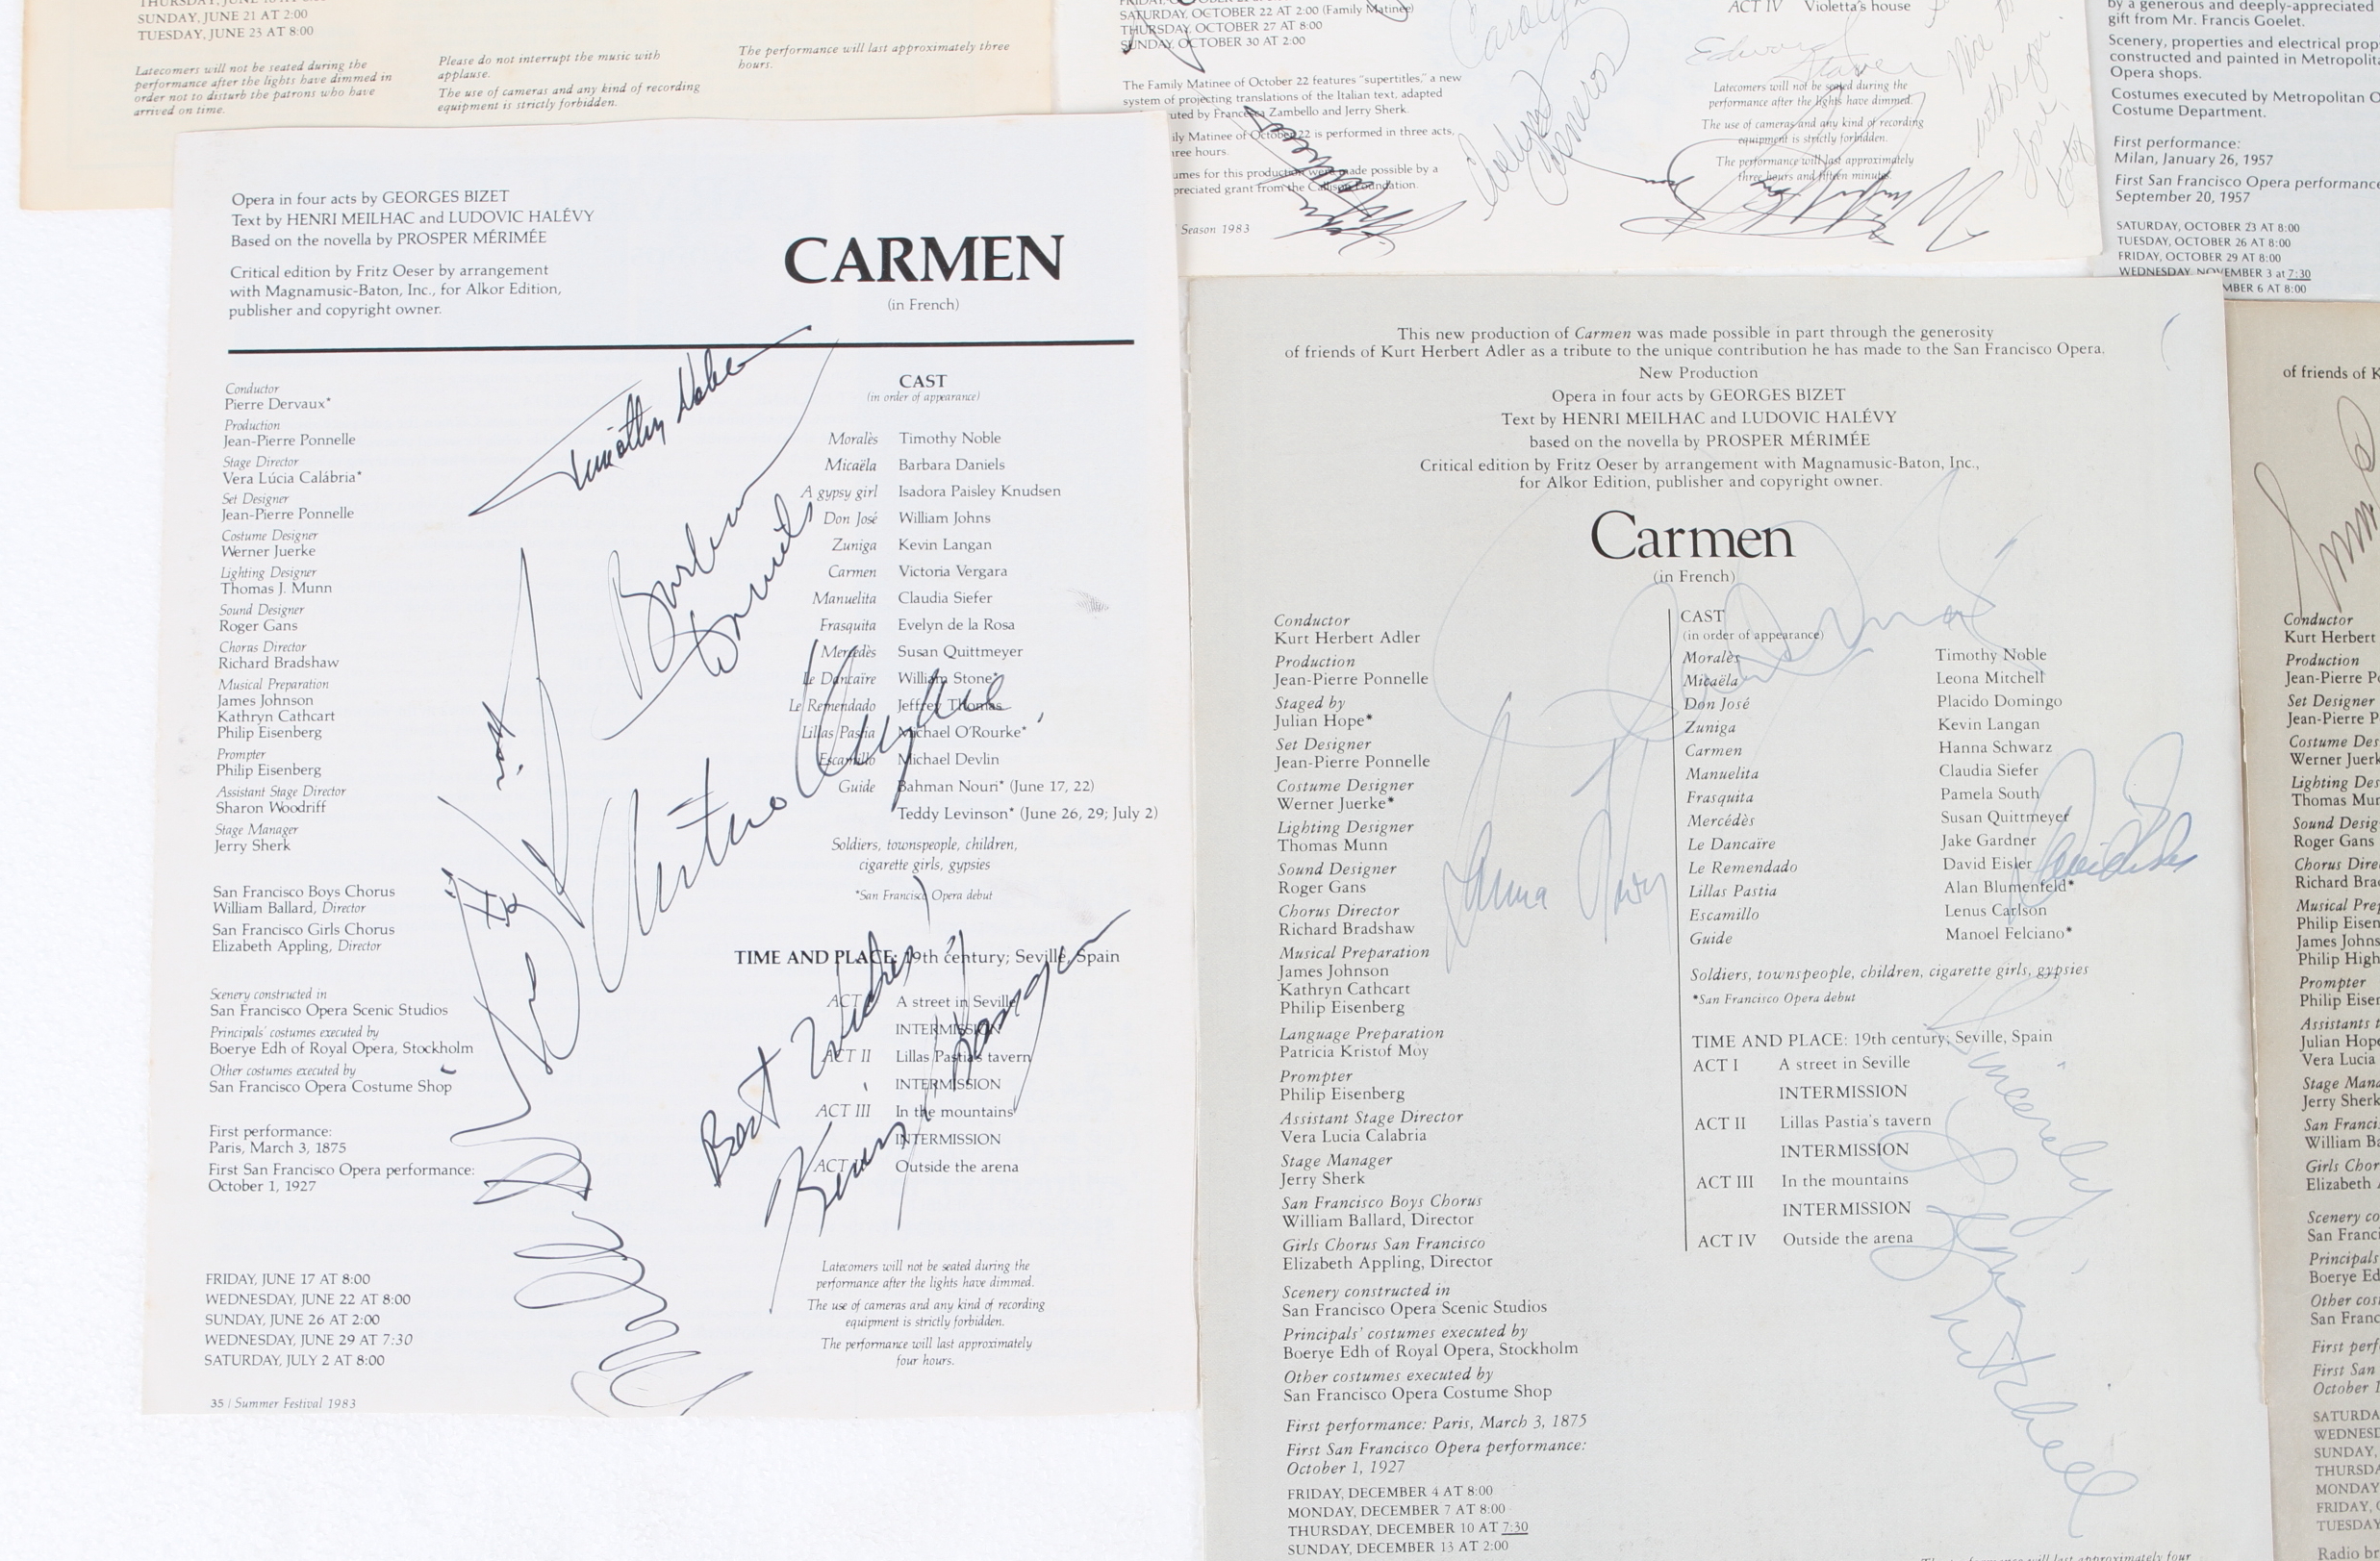 SUNDAY, JUNE 21 AT 2:00
TUESDAY, JUNE 23 AT 8:00
Latecomers will not be seated during the
performance after the lights have dimmed in
order not to disturb the patrons who have
arrived on time.
Please do not interrupt the music with
applause.
The use of cameras and any kind of recording
equipment is strictly forbidden.
The performance will last approximately three
hours.
SATURDAY, OCTOBER 22 AT 2:00 (Family Matinee)
THURSDAY, OCTOBER 27 AT 8:00
SUNDAY, OCTOBER 30 AT 2:00
The Family Matinee of October 22 features "supertitles," a new
system of projecting translations of the Italian text, adapted
uted by Francesca Zambello and Jerry Sherk.
ily Matinee of October 22 is performed in three acts,
ree hours.
umes for this production were made possible by a
preciated grant from the Callison Foundation.
Season 1983
ACT IV Violetta's house
Latecomers will not be seated during the
performance after the lights have dimmed.
The use of cameras and any kind of recording
equipment is strictly forbidden.
The performance will last approximately
three hours and fifteen minutes.
by a generous and deeply-appreciated
gift from Mr. Francis Goelet.
Scenery, properties and electrical prop
constructed and painted in Metropolita
Opera shops.
Costumes executed by Metropolitan O
Costume Department.
First performance:
Milan, January 26, 1957
First San Francisco Opera performance
September 20, 1957
SATURDAY, OCTOBER 23 AT 8:00
TUESDAY, OCTOBER 26 AT 8:00
FRIDAY, OCTOBER 29 AT 8:00
WEDNESDAY, NOVEMBER 3 at 7:30
MBER 6 AT 8:00
Opera in four acts by GEORGES BIZET
Text by HENRI MEILHAC and LUDOVIC HALÉVY
Based on the novella by PROSPER MÉRIMÉE
Critical edition by Fritz Oeser by arrangement
with Magnamusic-Baton, Inc., for Alkor Edition,
publisher and copyright owner.
CARMEN
(in French)
Conductor
Pierre Dervaux*
Production
Jean-Pierre Ponnelle
Stage Director
Vera Lúcia Calábria*
Set Designer
Jean-Pierre Ponnelle
Costume Designer
Werner Juerke
Lighting Designer
Thomas J. Munn
Sound Designer
Roger Gans
Chorus Director
Richard Bradshaw
Musical Preparation
James Johnson
Kathryn Cathcart
Philip Eisenberg
Prompter
Philip Eisenberg
Assistant Stage Director
Sharon Woodriff
Stage Manager
Jerry Sherk
San Francisco Boys Chorus
William Ballard, Director
San Francisco Girls Chorus
Elizabeth Appling, Director
Scenery constructed in
San Francisco Opera Scenic Studios
Principals' costumes executed by
Boerye Edh of Royal Opera, Stockholm
Other costumes executed by
San Francisco Opera Costume Shop
First performance:
Paris, March 3, 1875
First San Francisco Opera performance:
October 1, 1927
FRIDAY, JUNE 17 AT 8:00
WEDNESDAY, JUNE 22 AT 8:00
SUNDAY, JUNE 26 AT 2:00
WEDNESDAY, JUNE 29 AT 7:30
SATURDAY, JULY 2 AT 8:00
35 | Summer Festival 1983
CAST
(in order of appearance)
Moralès Timothy Noble
Micaëla Barbara Daniels
A gypsy girl Isadora Paisley Knudsen
Don José William Johns
Zuniga Kevin Langan
Carmen Victoria Vergara
Manuelita Claudia Siefer
Frasquita Evelyn de la Rosa
Mercédès Susan Quittmeyer
Le Dancaïre William Stone*
Le Remendado Jeffrey Thomas
Lillas Pastia Michael O'Rourke*
Escamillo Michael Devlin
Guide Bahman Nouri* (June 17, 22)
Teddy Levinson* (June 26, 29; July 2)
Soldiers, townspeople, children,
cigarette girls, gypsies
*San Francisco Opera debut
TIME AND PLACE: 19th century; Seville, Spain
ACT I A street in Seville
INTERMISSION
ACT II Lillas Pastia's tavern
INTERMISSION
ACT III In the mountains
INTERMISSION
ACT IV Outside the arena
Latecomers will not be seated during the
performance after the lights have dimmed.
The use of cameras and any kind of recording
equipment is strictly forbidden.
The performance will last approximately
four hours.
Timothy Noble
Barbara
Daniels
Best Wishes
Kevin Langan
This new production of Carmen was made possible in part through the generosity
of friends of Kurt Herbert Adler as a tribute to the unique contribution he has made to the San Francisco Opera.
New Production
Opera in four acts by GEORGES BIZET
Text by HENRI MEILHAC and LUDOVIC HALÉVY
based on the novella by PROSPER MÉRIMÉE
Critical edition by Fritz Oeser by arrangement with Magnamusic-Baton, Inc.,
for Alkor Edition, publisher and copyright owner.
Carmen
(in French)
Conductor
Kurt Herbert Adler
Production
Jean-Pierre Ponnelle
Staged by
Julian Hope*
Set Designer
Jean-Pierre Ponnelle
Costume Designer
Werner Juerke*
Lighting Designer
Thomas Munn
Sound Designer
Roger Gans
Chorus Director
Richard Bradshaw
Musical Preparation
James Johnson
Kathryn Cathcart
Philip Eisenberg
Language Preparation
Patricia Kristof Moy
Prompter
Philip Eisenberg
Assistant Stage Director
Vera Lucia Calabria
Stage Manager
Jerry Sherk
San Francisco Boys Chorus
William Ballard, Director
Girls Chorus San Francisco
Elizabeth Appling, Director
Scenery constructed in
San Francisco Opera Scenic Studios
Principals' costumes executed by
Boerye Edh of Royal Opera, Stockholm
Other costumes executed by
San Francisco Opera Costume Shop
First performance: Paris, March 3, 1875
First San Francisco Opera performance:
October 1, 1927
FRIDAY, DECEMBER 4 AT 8:00
MONDAY, DECEMBER 7 AT 8:00
THURSDAY, DECEMBER 10 AT 7:30
SUNDAY, DECEMBER 13 AT 2:00
CAST
(in order of appearance)
Moralès Timothy Noble
Micaëla Leona Mitchell
Don José Placido Domingo
Zuniga Kevin Langan
Carmen Hanna Schwarz
Manuelita Claudia Siefer
Frasquita Pamela South
Mercédès Susan Quittmeyer
Le Dancaïre Jake Gardner
Le Remendado David Eisler
Lillas Pastia Alan Blumenfeld*
Escamillo Lenus Carlson
Guide Manoel Felciano*
Soldiers, townspeople, children, cigarette girls, gypsies
*San Francisco Opera debut
TIME AND PLACE: 19th century; Seville, Spain
ACT I A street in Seville
INTERMISSION
ACT II Lillas Pastia's tavern
INTERMISSION
ACT III In the mountains
INTERMISSION
ACT IV Outside the arena
Sincerely,
Leona Mitchell
David Eisler
of friends of K
Conductor
Kurt Herbert
Production
Jean-Pierre P
Set Designer
Jean-Pierre P
Costume Des
Werner Juerk
Lighting Des
Thomas Mun
Sound Desig
Roger Gans
Chorus Dire
Richard Bra
Musical Prep
Philip Eisen
James Johns
Philip High
Prompter
Philip Eiser
Assistants t
Julian Hope
Vera Lucia
Stage Mana
Jerry Sherk
San Franci
William Ba
Girls Chor
Elizabeth A
Scenery co
San Franci
Principals
Boerye Ed
Other cost
San Franc
First perf
First San
October 1
SATURDA
WEDNESD
SUNDAY,
THURSDA
MONDAY
FRIDAY,
TUESDAY
Radio br